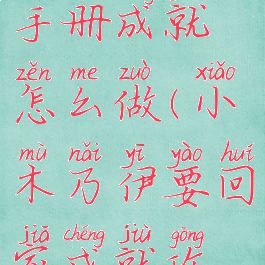 手册成就
zěn me zuò xiǎo
怎么做(小
mù nǎi yī yào huí
木乃伊要回
jiā chéng jiù gōng
家成就